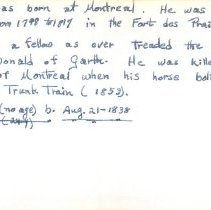 as born at Montreal. He was
om 1798 to 1817 in the Fort des Prai
a fellow as over treaded the
onald of Garth. He was kille
of Montreal when his horse bol
Trunk Train (1853).
(no age) b. Aug. 21-1838